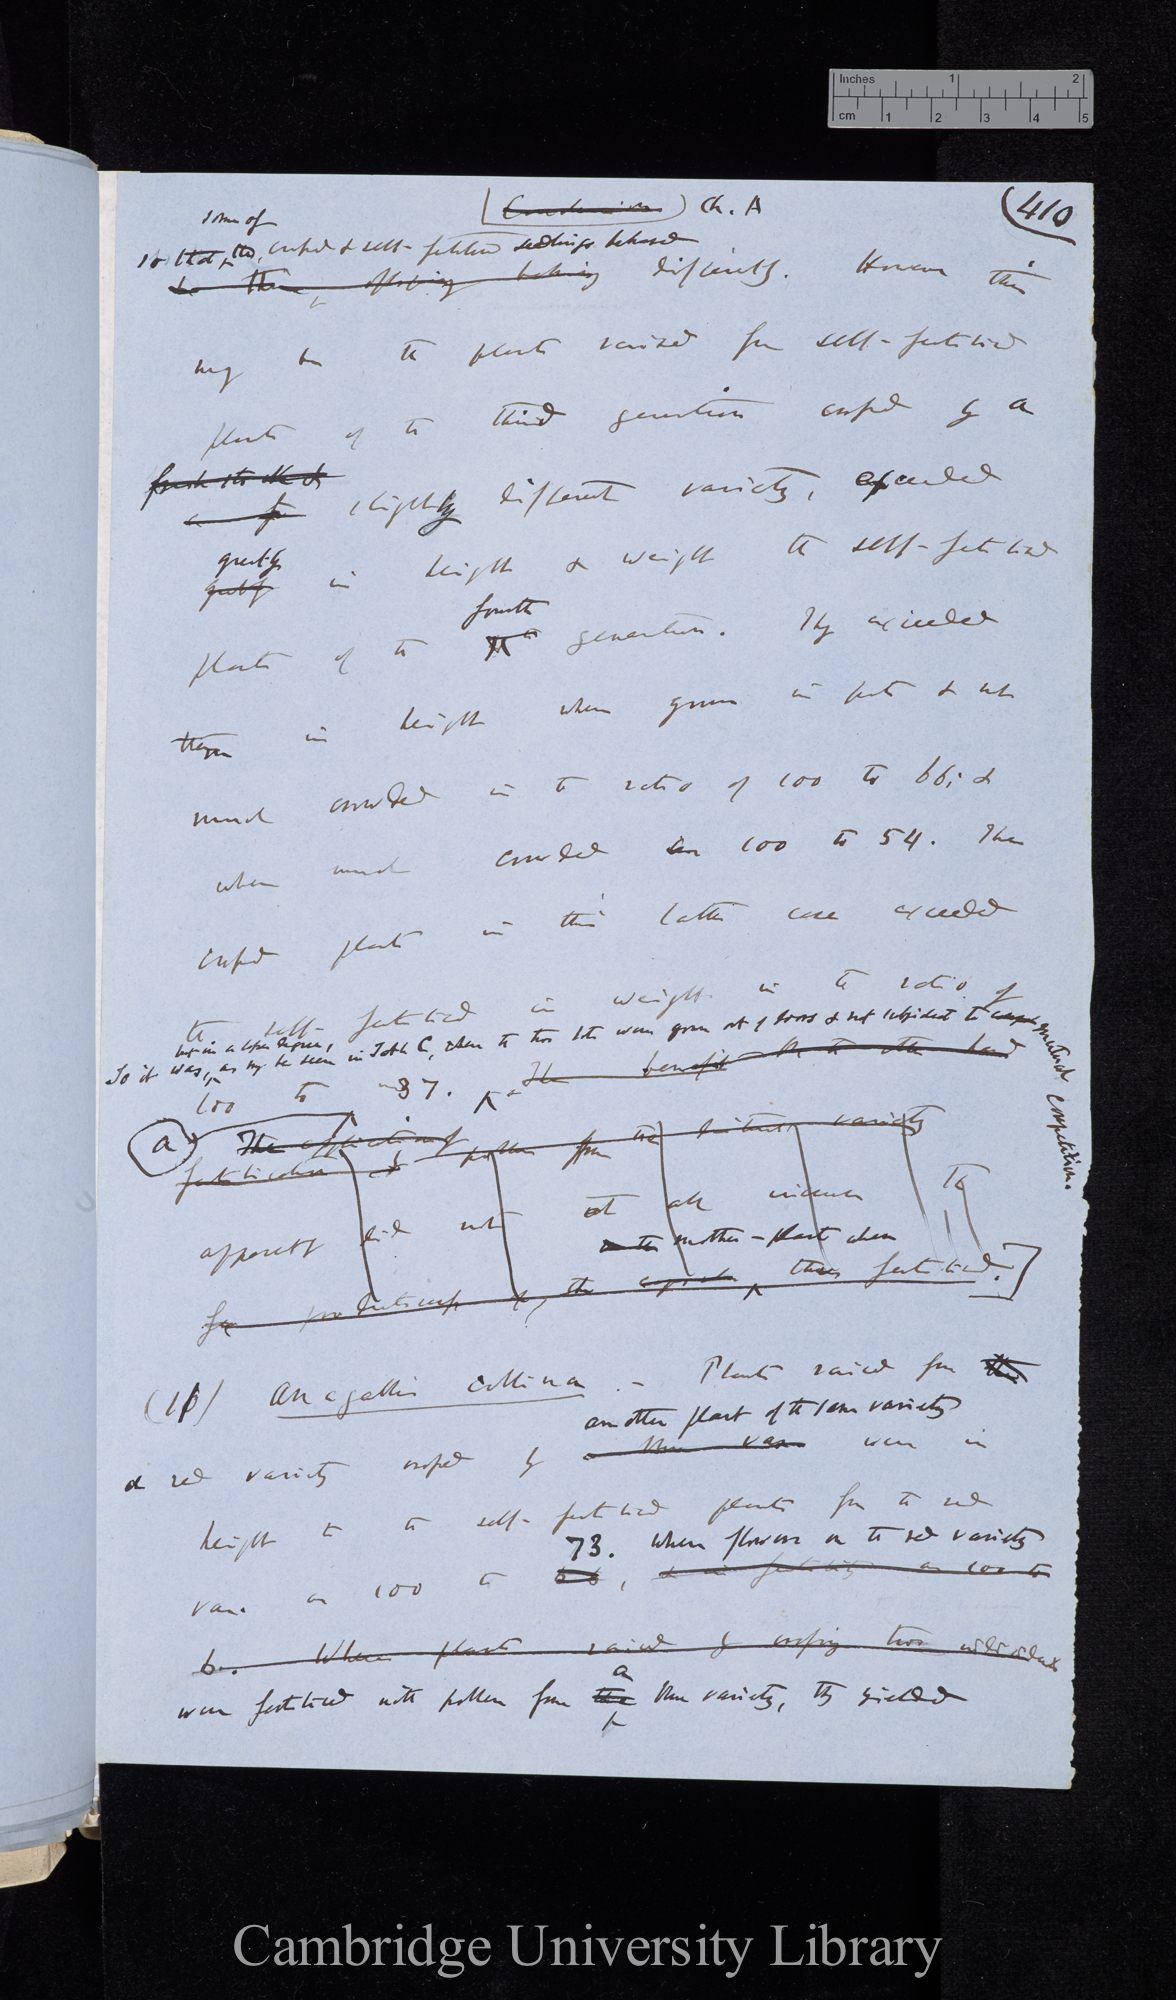 Inches 1 2
cm 1 2 3 4 5
(Conclusion) Ch. A
410
some of
so that the, crossed & self-fertilised seedlings behaved
differently. However this
may be the plants raised from self-fertilised
plants of the third generation crossed by a
fresh stock
slightly different variety, exceeded
greatly
greatly in height & weight the self-fertilised
fourth
plants of the generation. They exceeded
them in height when grown in pots & not
much crowded in the ratio of 100 to 66; &
when much crowded as 100 to 54. The
crossed plants in this latter case exceeded
the self-fertilised in weight in the ratio of
but in a less degree,
So it was, as may be seen in Table C, when the two lots were grown out of doors & not subjected to mutual competition.
100 to 37. The benefit on the other hand
a
The application of pollen from the variety
fertilisation
apparently did not at all increase the
mother-plant when
the thus fertilised.]
(18) Anagallis collina. - Plants raised from the
another plant of the same variety
a red variety crossed by were in
height to the self-fertilised plants from the red
73. When flowers on the red variety
var. as 100 to 66, & in fertility as 100 to
6. When plants raised by crossing two individuals
a
were fertilised with pollen from the blue variety, they yielded
Cambridge University Library